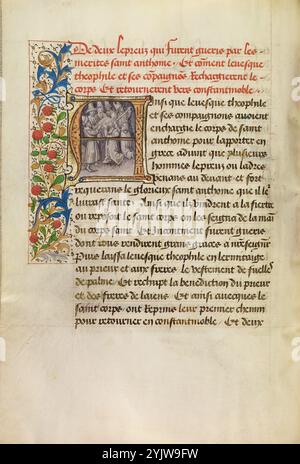 De deux lepreux qui furent gueris par les
merites saint anthome. Et coment leuesque
theophile et ses compaignos Rechargierent le
corps Et retournerent vers constantinoble.
Ainsi que leuesque theophile
et ses compagnons auoient
enchargie le corps de saint
anthome pour laporter en
grece aduint que plusieurs
hommes lepreux ou ladres
venans au deuant et fort
requerans le glorieux saint anthome que il le
sante Ainsi que ilz vindrent a la fierte
ou repost le saint corps on les seigna de la main
du corps saint Et incontinent furent gueris
dont tous rendirent grans graces a nreseignr
Puis laissa leuesque theophile en lermitage
au prieur et aux freres le vestement de fuelles
de palme Et rechupt la benediction du prieur
et des freres de laiens Et ainsi auecques le
saint corps ont Reprins leur premier chemin
pour retourner en constantinoble. Et deux
alamy
Image ID: 2YJW9FW
www.alamy.com